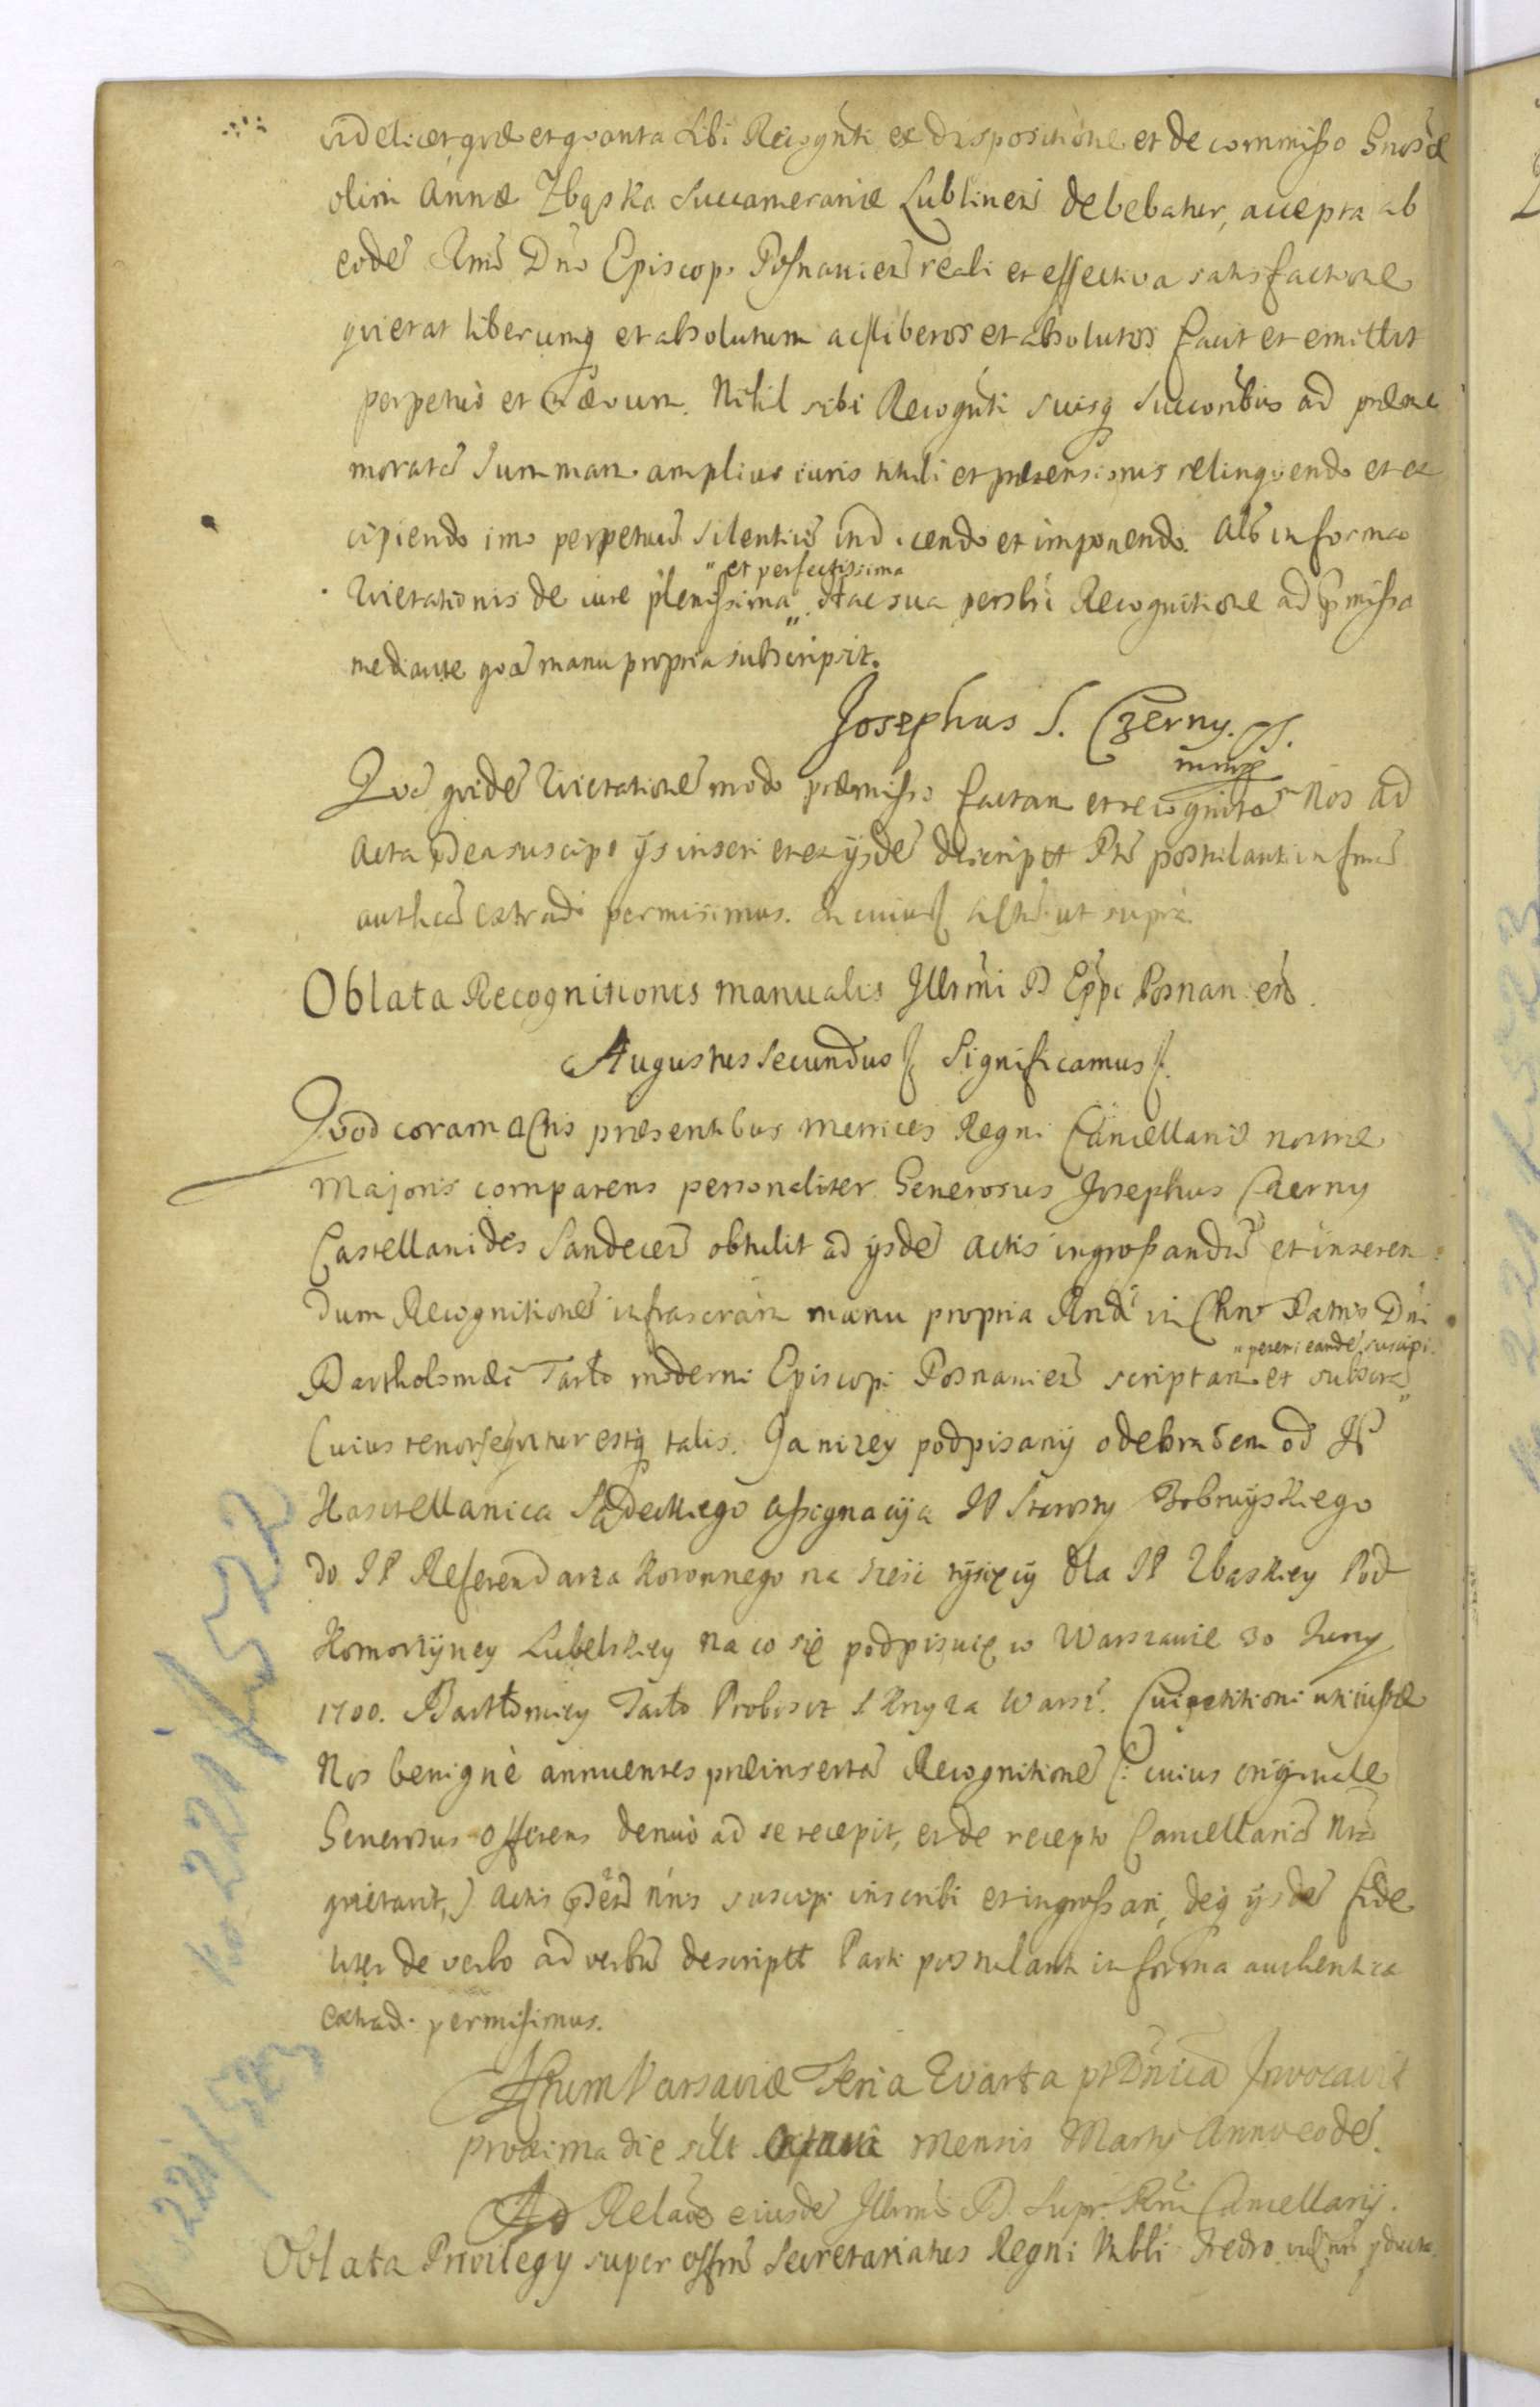 videlicet quæ et quanta sibi Recogn̄ti ex dispositione et de commisso Gnosæ
olim Annæ Zbąska Succamerariæ Lublinen̄ debebatur, accepta ab
eodē Rmō Dnō Episcopo Posnanien̄ reali et effectiva satisfactione
quietat liberumq et absolutum ac liberos et absolutos facit et emittit
perpetuò et in ævum. Nihil sibi Recogn̄ti suisq Succoribus ad præme
moratā Summam amplius iuris tituli et prætensionis relinquendo et ex
cipiendo imo perpetuū silentiū indicendo et imponendo. Alō in forma
Quietationis de iure plenissima " et perfectissima " Hac sua perslri Recognitione ad p̄missa
mediante quā manu propria subscripsit.
Josephus S. Czerny. CS.
mmp
Quā quidē Quietationē modo præmisso factam et recognitā Nos ad
Acta suscipi ijs inseri et ex ijsdē descriptt Pti postulanti in fmā
authcā extradi permisimus. In cuius Actū ut supra.
Oblata Recognitionis manualis Illrmi D Eppi Posnan en̄.
Augustus Secundus Significamus
Quod coram Actis præsentibus Metrices Regni Cancellariæ nostræ
Majoris comparens personaliter Generosus Josephus Czerny
Castellanides Sandecen̄ obtulit ad ijsdē Actis ingrossandū et inseren
dum Recognitionē infrascram manu propria Rndi in Chro Patris Dni
Bartholomæi Tarło moderni Episcopi Posnanien̄ scriptam et subscrā " petens eandē suscipi.
Cuius tenor sequitur estq talis. Ja nizey podpisany odebrałem od JP
Kasztellanica Sądeckiego Assignacyja JP Starosty Bobruyskiego
do JP Referendarza Koronnego na sześć tysięcy dla JP Zbaskiey Pod
Komorzyney Lubelskiey na co się podpisuię w Warszawie 30 Juny
1700. Bartłomiey Tarło Proboszcz S Krzyza Warsz. Cui petitioni uti iustæ
Nos benignè annuentes præinsertā Recognitionē (: cuius originale
Generosus Offerens denuò ad se recepit, et de recepto Cancellariā Nrā
quietavit,) Actis nrīs suscipi inscribi et ingrossari, deq ijsdē fide
liter de verbo ad verbū descriptt Parti postulanti in forma authentica
extradi permisimus.
Actum Varsaviæ Feria Quarta pt Dnicā Invocavit
proxima die scilt Octava Mensis Martij Anno eodē.
Ad Relaōē eiusdē Illrmi D. Supr. Rni Cancellarij.
Oblata Privilegy super offm̄ Secretariatus Regni Fredro